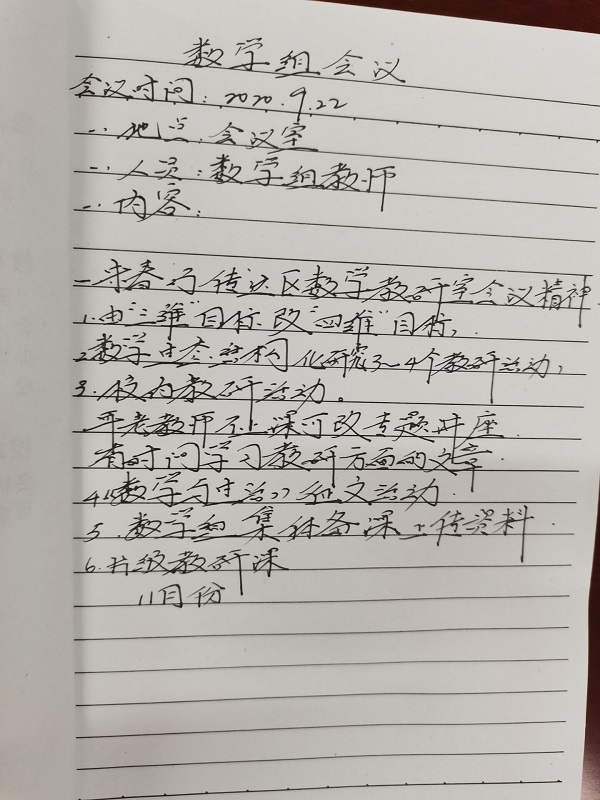 数学组会议
会议时间：2020.9.22
一、地点：会议室
一、人员：数学组教师
一、内容：
一、传达区数学教研室会议精神
1.由"三维"目标改"四维"目标，
2.数学结构化研究3~4个教研活动，
3.校内教研活动。
老教师不上课可改专题讲座
有时间学习教研方面的文章
4.《数学与生活》征文活动
5.数学组集体备课上传资料
6.片级教研课
11月份